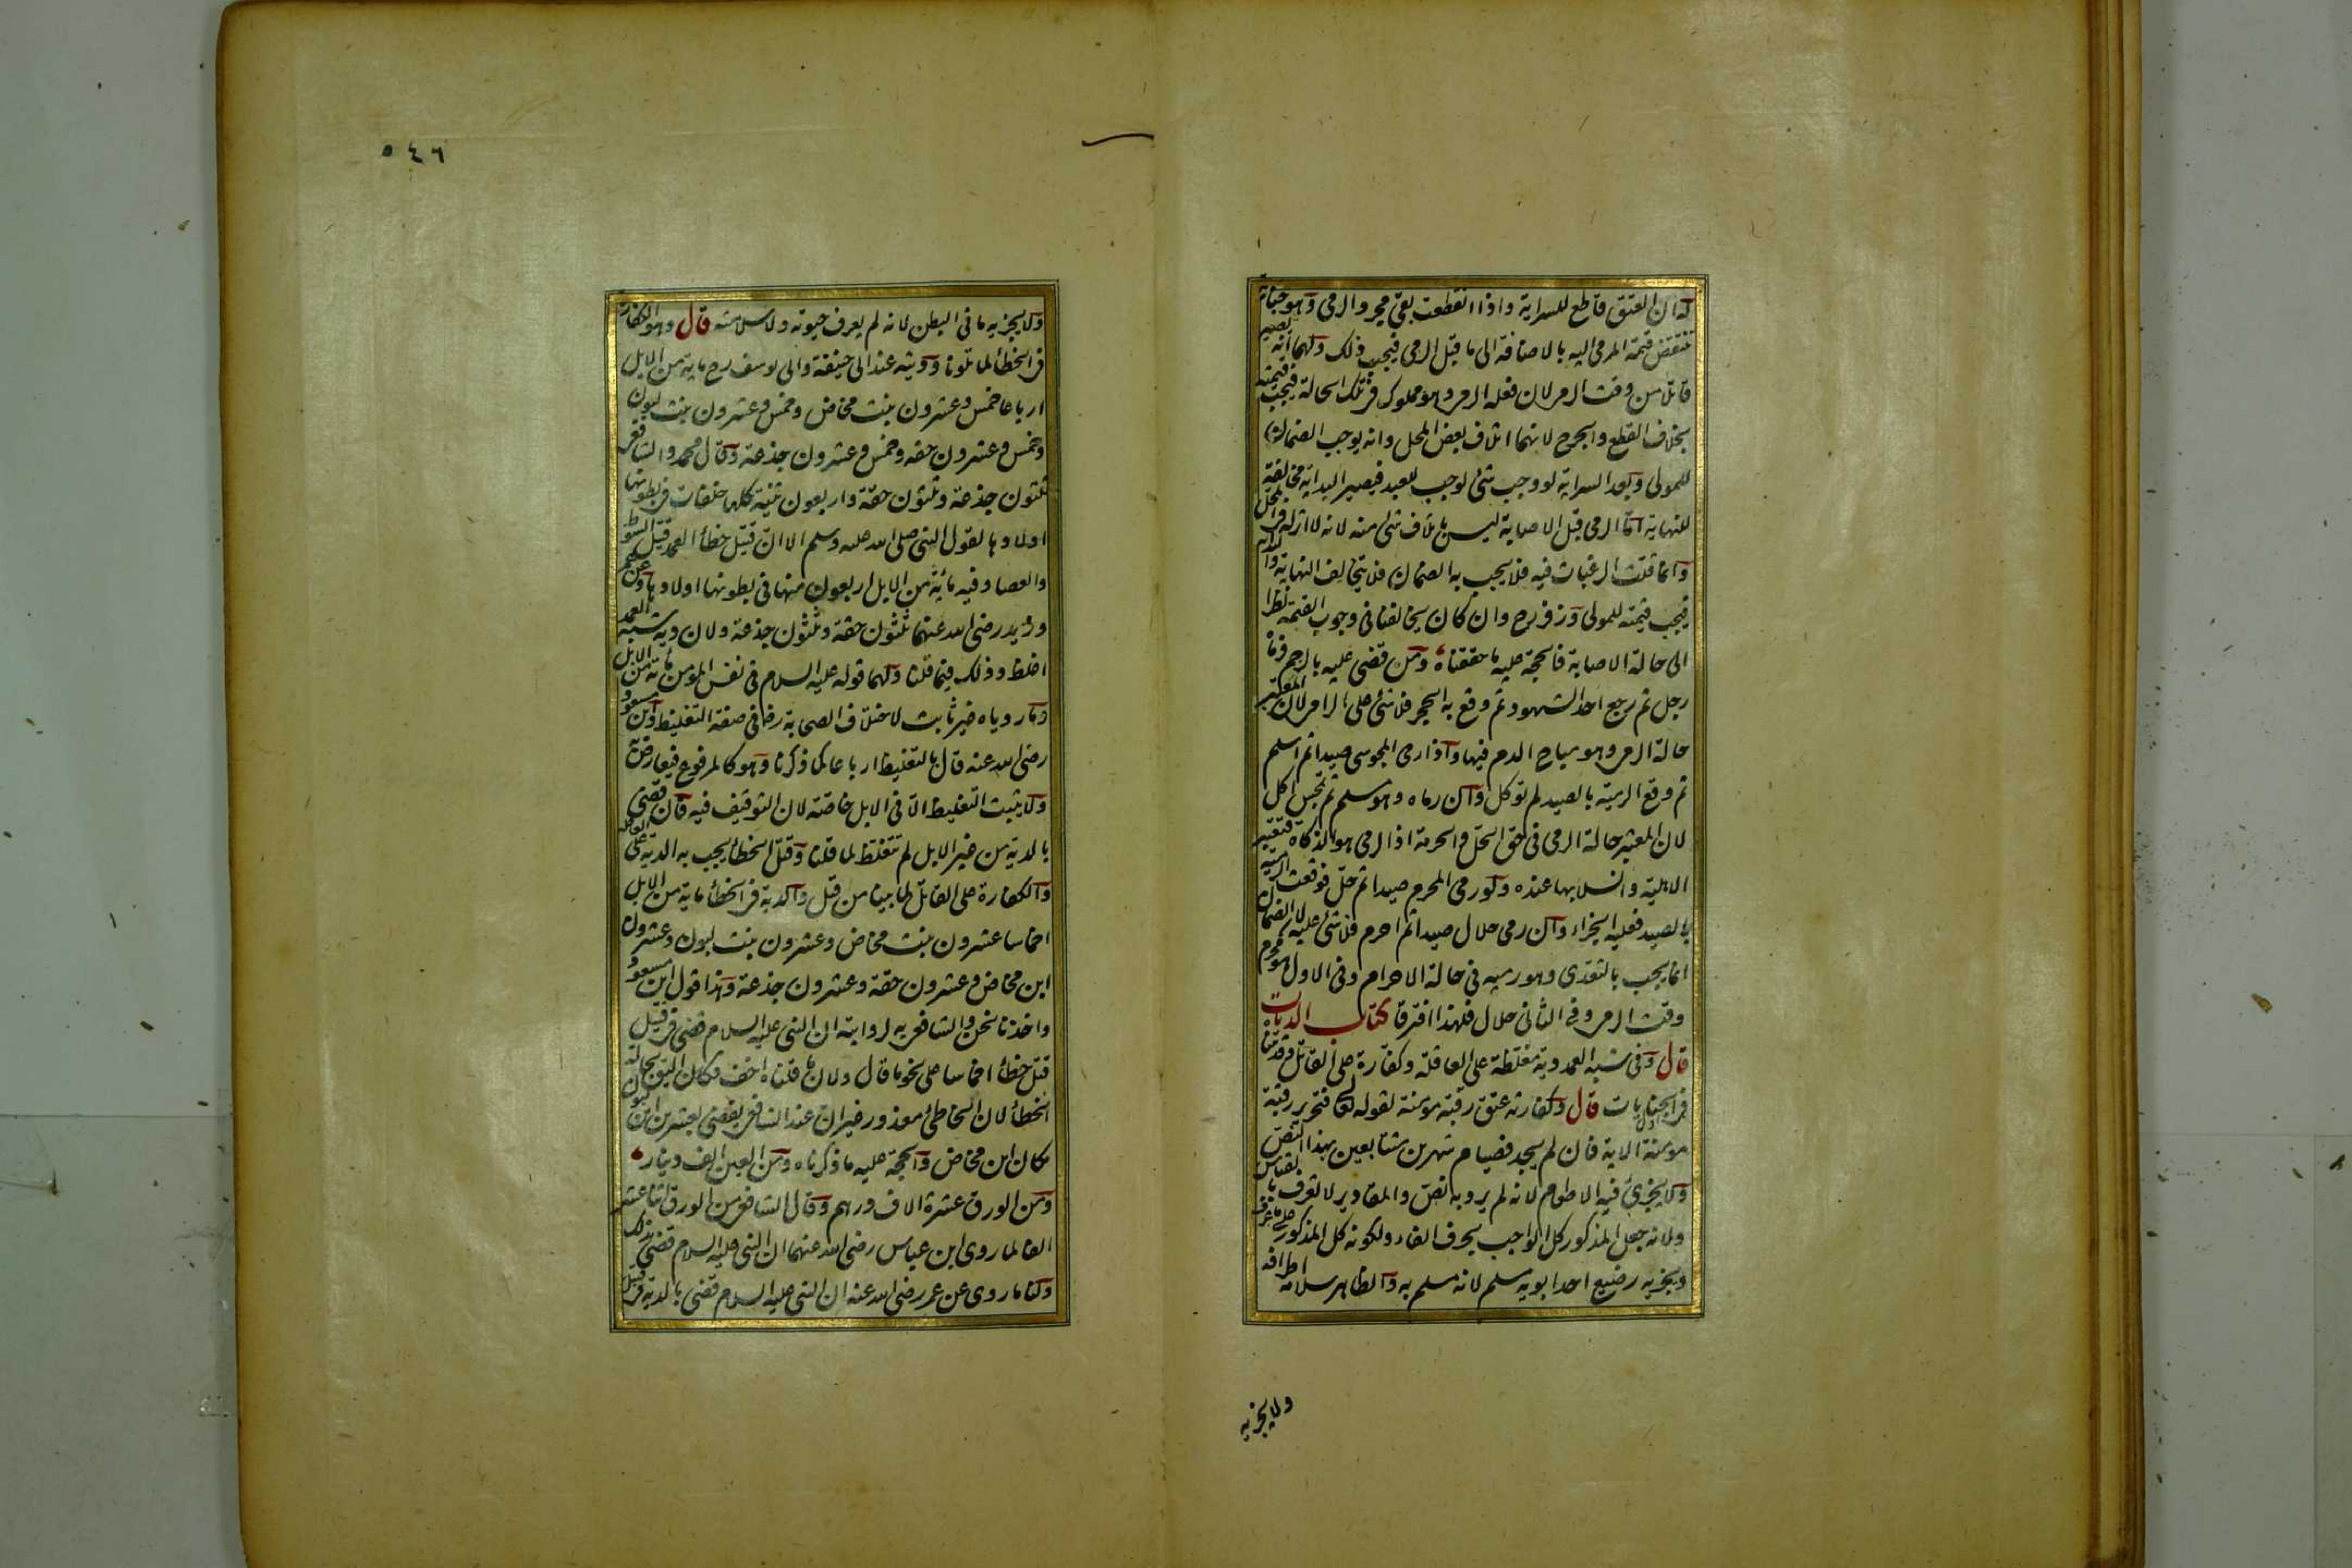 له ان العتق قاطع للسراية واذا انقطعت بقى مجرد الرمى وهو جناية
تنتقض قيمة المرمى اليه بالاضافة الى ما قبل الرمى فيجب ذلك ولهما انه يصير
قاتلا من وقت الرمى لان فعله الرمى وهو مملوك فى تلك الحالة فيجب قيمته
بخلاف القطع والجرح لانهما اتلاف بعض المحل وانه يوجب الضمان
للمولى وبعد السراية لو وجب شئ لوجب للعبد فيصير البداية مخالفة
للنهاية اما الرمى قبل الاصابة ليس باتلاف شئ منه لانه لا اثر له فى المحل
وانما قلت الرغبات فيه فلا يجب به الضمان فلا يتخالف النهاية والبداية
فيجب قيمته للمولى وزفر رح وان كان يخالفنا فى وجوب القيمة نظرا
الى حالة الاصابة فالحجة عليه ما حققناه ومن قضى عليه بالرجم فرماه
رجل ثم رجع احد الشهود ثم وقع به الحجر فلا شئ على الرامى لان المعتبر
حالة الرمى وهو مباح الدم فيها واذا رمى المجوسى صيدا ثم اسلم
ثم وقع الرمية بالصيد لم توكل وان رماه وهو مسلم ثم تمجس اكل
لان المعتبر حالة الرمى فى حق الحل والحرمة اذ الرمى هو الذكاة فتعتبر
الاهلية وانسلابها عنده ولو رمى المحرم صيدا ثم حل فوقعت الرمية
بالصيد فعليه الجزاء وان رمى حلال صيدا ثم احرم فلا شئ عليه لان الضمان
انما يجب بالتعدى وهو رميه فى حالة الاحرام وفى الاول هو محرم
وقت الرمى وفى الثانى حلال فلهذا افترقا كتاب الديات
قال وفى شبه العمد دية مغلظة على العاقلة وكفارة على القاتل وقد بيناه
فى اول الجنايات قال وكفارته عتق رقبة مؤمنة لقوله تعالى فتحرير رقبة
مومنة الاية فان لم يجد فصيام شهرين متتابعين بهذا النص
ولا يجزئ فيه الاطعام لانه لم يرد به نص والمقادير لا تعرف بالقياس
ولانه جعل المذكور كل الواجب بحرف الفاء ولكونه كل المذكور على ما عرف
ويجزيه رضيع احد ابويه مسلم لانه مسلم به والظاهر سلامة اطرافه
ولا يجزيه
٥٤٦
ولا يجزيه ما فى البطن لانه لم يعرف حيوته ولا سلامته قال وهو الكفارة
فى الخطأ لما تلونا وديته عند ابى حنيفة وابى يوسف رح ماية من الابل
ارباعا خمس وعشرون بنت مخاض وخمس وعشرون بنت لبون
وخمس وعشرون حقه وخمس وعشرون جذعة وقال محمد والشافعى
ثلثون جذعة وثلثون حقة واربعون ثنية كلها خلفات فى بطونها
اولادها لقوله النبى صلى الله عليه وسلم الا ان قتيل خطأ العمد قتيل السوط
والعصا وفيه مائة من الابل اربعون منها فى بطونها اولادها وعن عمر
وزيد رضى الله عنهما ثلثون حقة وثلثون جذعة ولان دية شبه العمد
اغلظ وذلك فيما قلنا ولهما قوله عليه السلام فى نفس المومن مائة من الابل
وما روياه غير ثابت لاختلاف الصحابة رض فى صفة التغليظ وابن مسعود
رضى الله عنه قال بالتغليظ ارباعا كما ذكرنا وهو كالمرفوع فيعارض
ولا يثبت التغليظ الا فى الابل خاصة لان التوقيف فيه فان قضى
بالدية من غير الابل لم تتغلظ لما قلنا وقتل الخطأ يجب به الدية على العاقلة
والكفارة على القاتل لما بينا من قبل والدية فى الخطأ ماية من الابل
اخماسا عشرون بنت مخاض وعشرون بنت لبون وعشرون
ابن مخاض وعشرون حقة وعشرون جذعة وهذا قول ابن مسعود
واخذنا نحن والشافعى به لروايته ان النبى عليه السلام قضى فى قتيل
قتل خطأ اخماسا على نحو ما قال ولان ما قلناه اخف فكان اليق بحالة
الخطأ لان الخاطئ معذور غير ان عند الشافعى يقضى بعشرين ابن لبون
مكان ابن مخاض والحجة عليه ما ذكرناه ومن العين الف دينار
ومن الورق عشرة الاف درهم وقال الشافعى من الورق اثنا عشر
الفا لما روى ابن عباس رضى الله عنهما ان النبى عليه السلام قضى بذلك
ولنا ما روى عن عمر رضى الله عنه ان النبى عليه السلام قضى بالدية فى قتيل